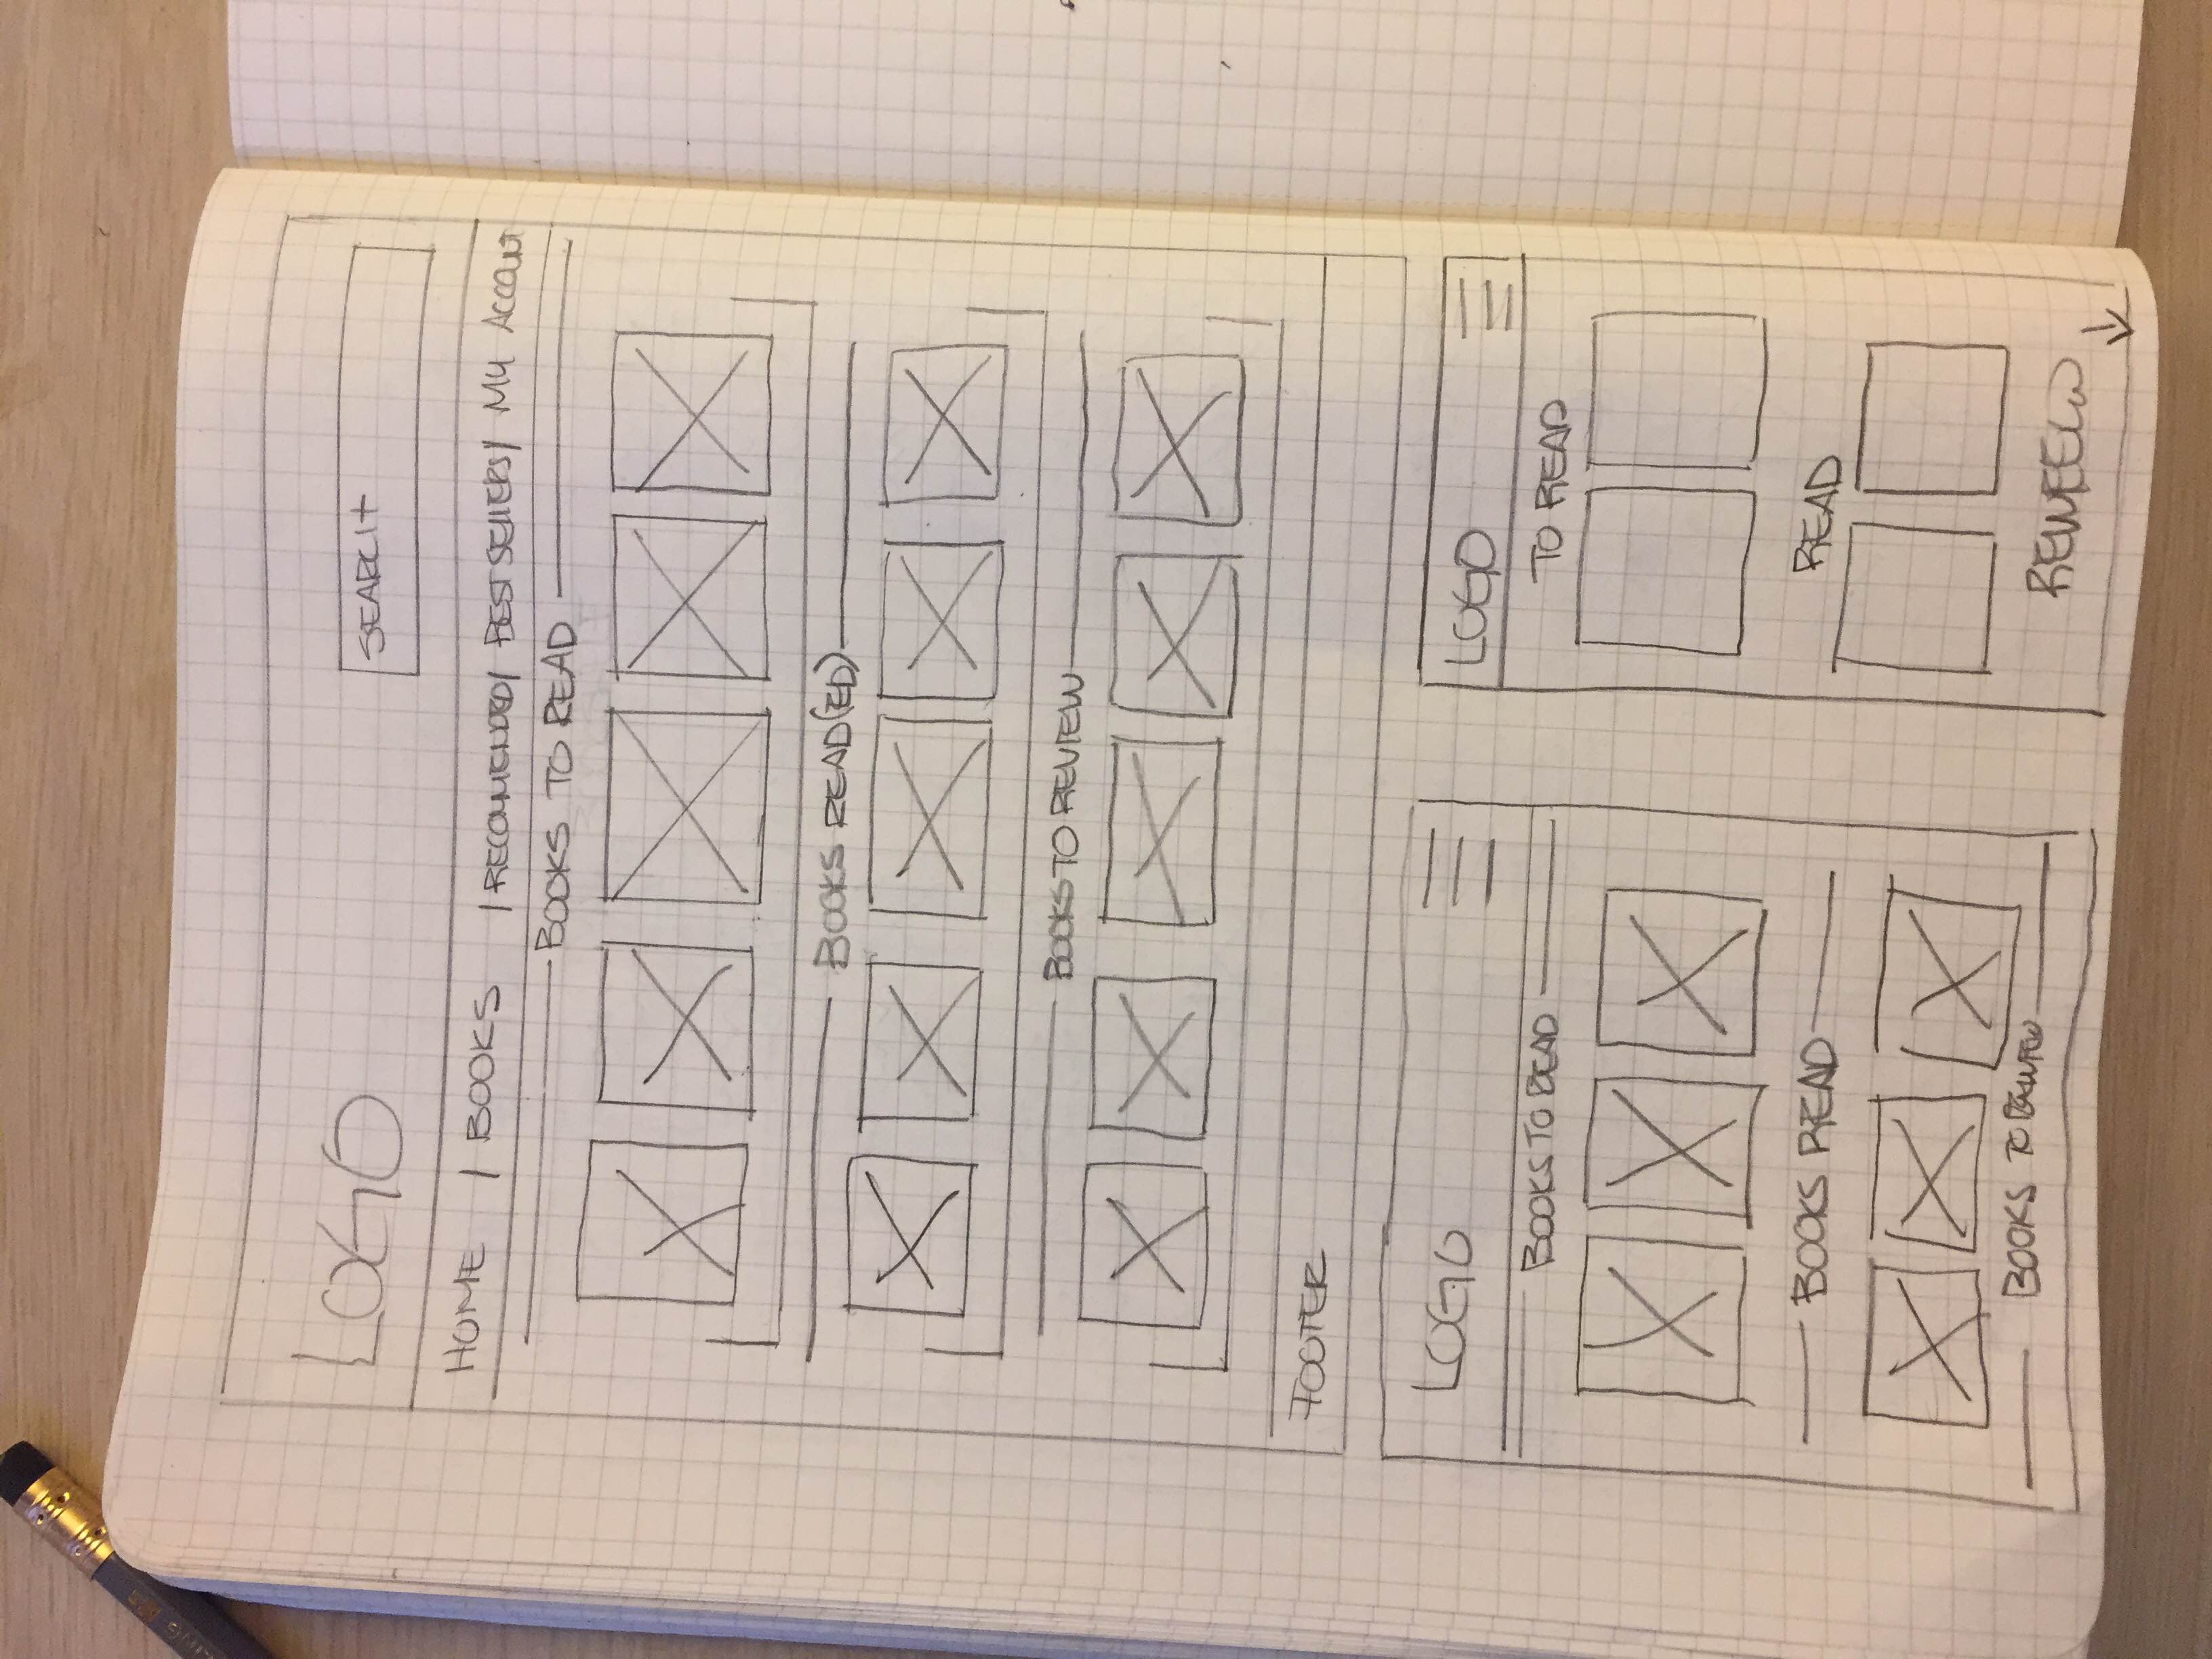 LOGO
SEARCH
HOME | BOOKS | RECOMMENDED | BEST SELLERS | MY ACCOUNT
BOOKS TO READ
BOOKS READ(ED)
BOOKS TO REVIEW
FOOTER
LOGO
BOOKS TO READ
BOOKS READ
BOOKS TO
LOGO
TO READ
READ